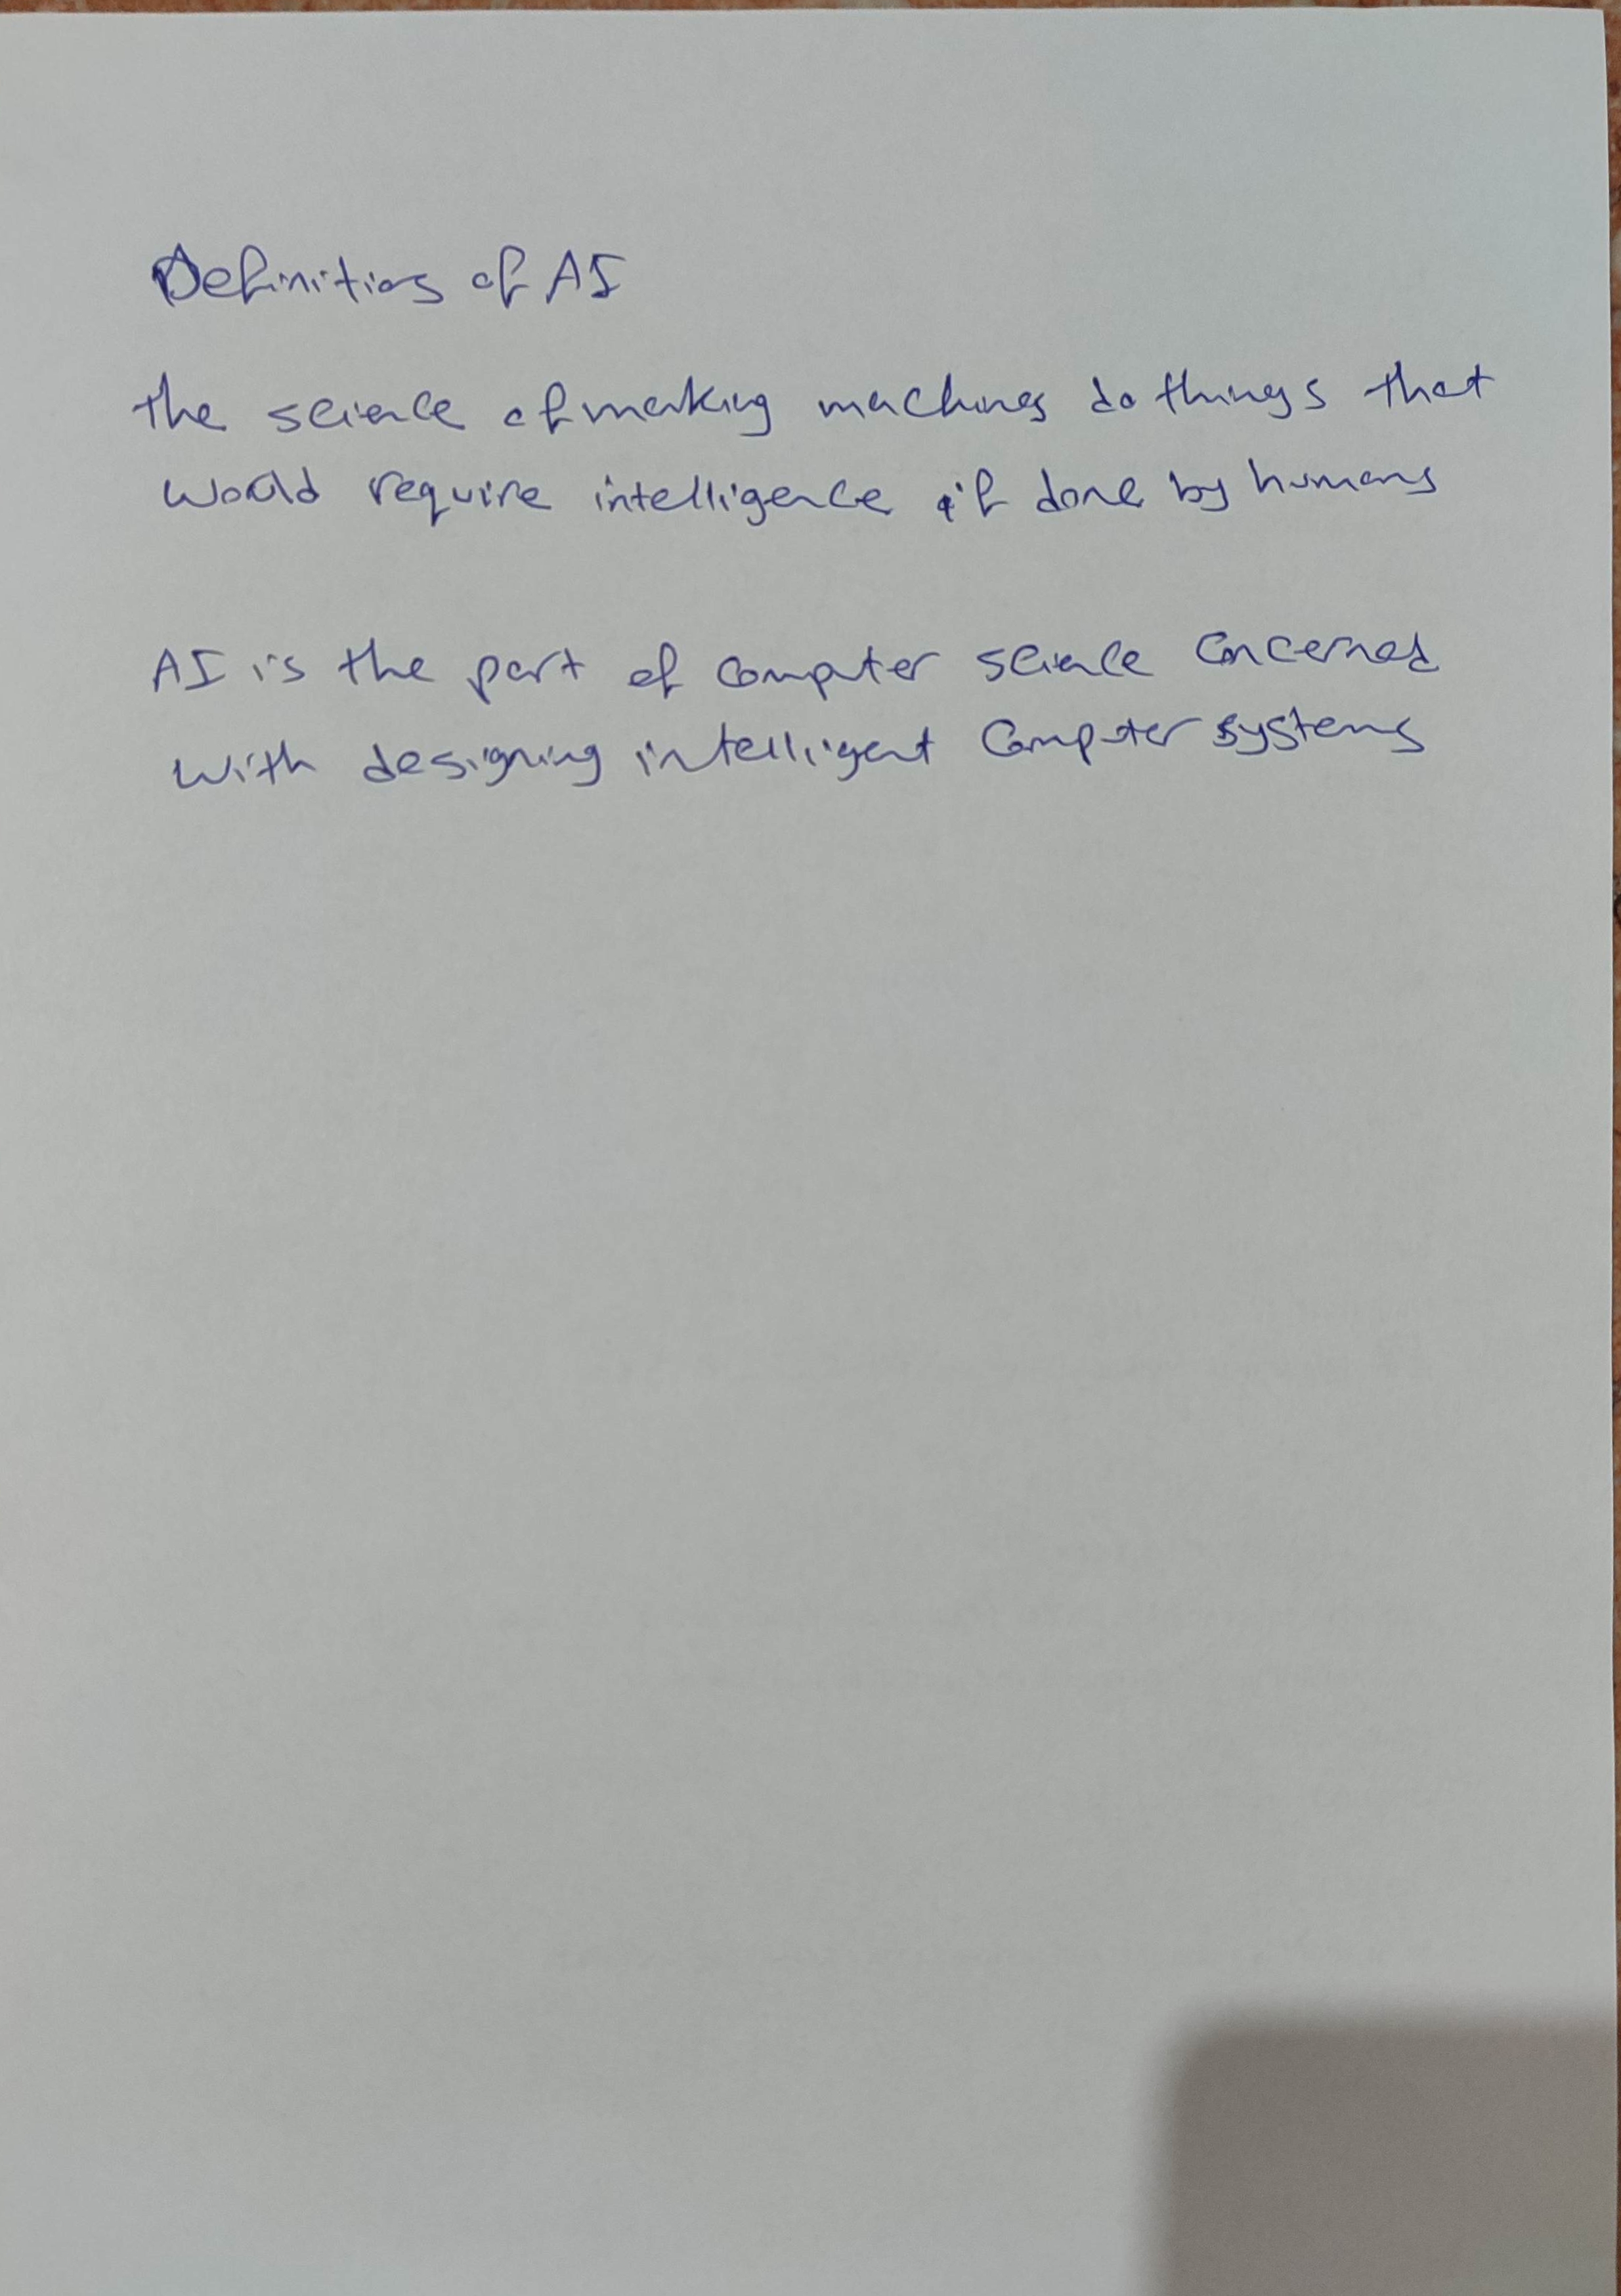 Definitions of AI
the science of making machines do things that
would require intelligence if done by humans
AI is the part of computer science concerned
with designing intelligent computer systems